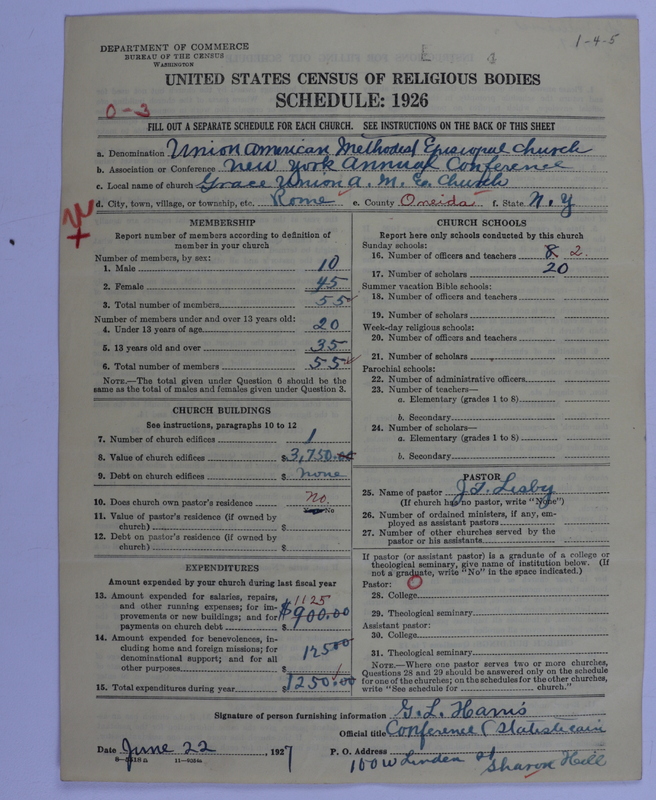 1-4-5
DEPARTMENT OF COMMERCE
BUREAU OF THE CENSUS
WASHINGTON
UNITED STATES CENSUS OF RELIGIOUS BODIES
SCHEDULE: 1926
0-3
FILL OUT A SEPARATE SCHEDULE FOR EACH CHURCH. SEE INSTRUCTIONS ON THE BACK OF THIS SHEET
a. Denomination Union American Methodist Episcopal Church
b. Association or Conference New York Annual Conference
c. Local name of church Grace Union A. M. E. Church
d. City, town, village, or township, etc. Rome e. County Oneida f. State N. Y
MEMBERSHIP
Report number of members according to definition of
member in your church
Number of members, by sex:
1. Male 10
2. Female 45
3. Total number of members 55
Number of members under and over 13 years old:
4. Under 13 years of age 20
5. 13 years old and over 35
6. Total number of members 55
NOTE.—The total given under Question 6 should be the
same as the total of males and females given under Question 3.
CHURCH BUILDINGS
See instructions, paragraphs 10 to 12
7. Number of church edifices 1
8. Value of church edifices $3,750.00
9. Debt on church edifices $ none
10. Does church own pastor's residence no.
Yes or No
11. Value of pastor's residence (if owned by
church) $
12. Debt on pastor's residence (if owned by
church) $
EXPENDITURES
Amount expended by your church during last fiscal year
13. Amount expended for salaries, repairs,
and other running expenses; for im-
provements or new buildings; and for
payments on church debt $ 1125 $900.00
14. Amount expended for benevolences, in-
cluding home and foreign missions; for
denominational support; and for all
other purposes $ 125.00
15. Total expenditures during year $1250.00
CHURCH SCHOOLS
Report here only schools conducted by this church
Sunday schools:
16. Number of officers and teachers 8 2.
17. Number of scholars 20
Summer vacation Bible schools:
18. Number of officers and teachers
19. Number of scholars
Week-day religious schools:
20. Number of officers and teachers
21. Number of scholars
Parochial schools:
22. Number of administrative officers
23. Number of teachers—
a. Elementary (grades 1 to 8)
b. Secondary
24. Number of scholars—
a. Elementary (grades 1 to 8)
b. Secondary
PASTOR
25. Name of pastor J. T. Lisby
(If church has no pastor, write "None")
26. Number of ordained ministers, if any, em-
ployed as assistant pastors
27. Number of other churches served by the
pastor or his assistants
If pastor (or assistant pastor) is a graduate of a college or
theological seminary, give name of institution below. (If
not a graduate, write "No" in the space indicated.)
Pastor: O
28. College
29. Theological seminary
Assistant pastor:
30. College
31. Theological seminary
NOTE.—Where one pastor serves two or more churches,
Questions 28 and 29 should be answered only on the schedule
for one of the churches; on the schedules for the other churches,
write "See schedule for church."
Signature of person furnishing information G. L. Harris
Official title Conference Statistician
Date June 22, 1927 P. O. Address 100 W Linden St
Sharon Hill
8—5518 a 11—9034a